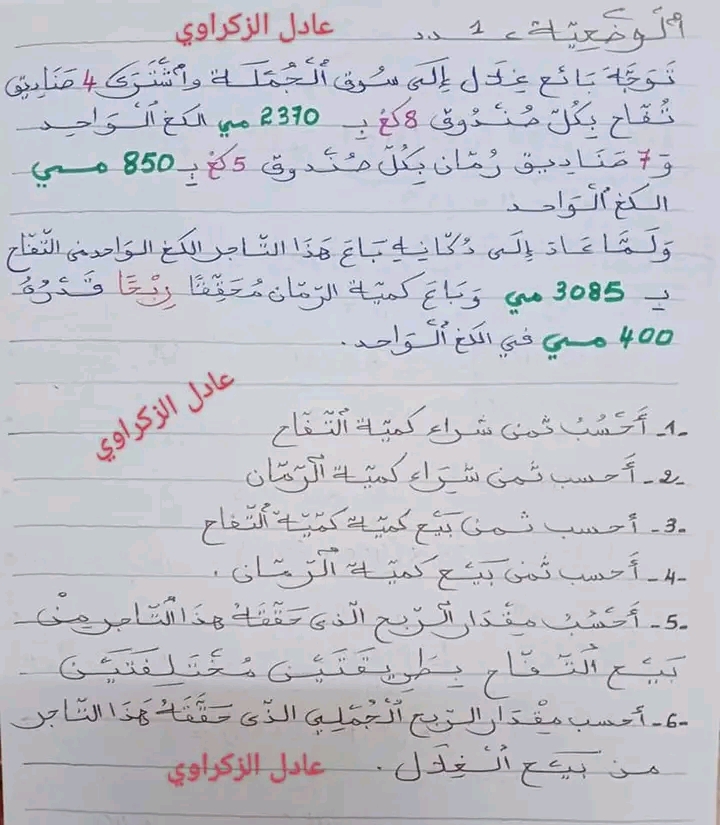 الوَضْعِيَّة 1 د.د عادل الزكراوي
تَوَجَّهَ بَائع غِلَال إِلَى سُوق الْجُمْلَة وَاشْتَرَى 4 صَنَادِيق
تُفّاح بِكُلّ صُنْدُوق 8 كغ بِـ 2370 مي الكغ الْوَاحِد
وَ 7 صَنَادِيق رُمّان بِكُلّ صُنْدوق 5 كغ بِـ 850 مي
الكغ الْوَاحد
وَلَمَّا عَادَ إِلَى دُكّانِهِ بَاعَ هَذَا التّاجر الكغ الوَاحد من التّفّاح
بِـ 3085 مي وَبَاعَ كميّة الرّمّان مُحَقّقًا رِبْحًا قَدْرُهُ
400 مي في الكغ الْوَاحد.
عادل الزكراوي
1- أَحْسُبُ ثمن شراء كميّة التّفّاح
2- أَحسب ثمن شِرَاء كميّة الرّمّان
3- أحسب ثمن بَيْع كميّة كمّيّة التّفاح
4- أَحسب ثمن بَيْع كميّة الرّمّان.
5- أَحْسُبُ مِقْدَار الرّبح الّذي حَقّقَهُ هذَا التّاجر مِنْ
بَيْع التّفّاح بِطَرِيقَتَيْن مُخْتَلِفَتَيْن
6- أحسب مِقْدَار الرّبح الْجُمْلِي الذّي حَقّقَهُ هَذَا التّاجر
من بَيْع الْغِلَال. عادل الزكراوي